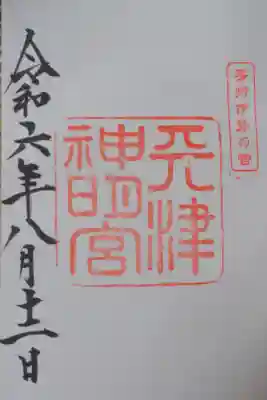 房州伊勢の宮
天津
神明宮
令和六年八月十一日